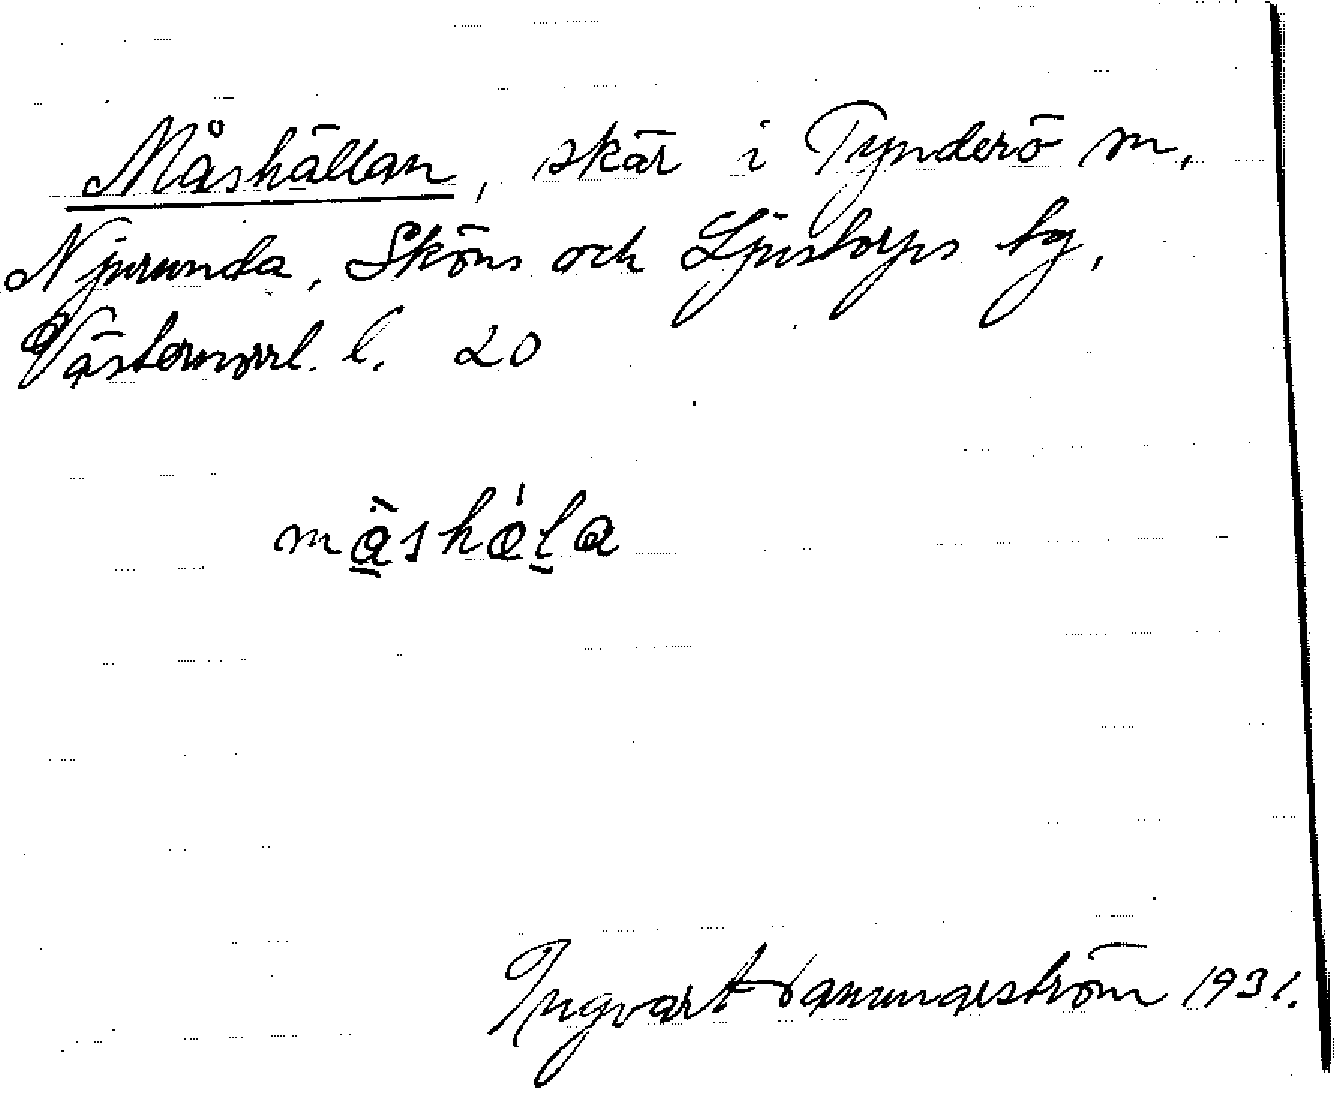 Måshällan, skär i Tynderö sn,
Njurunda, Sköns och Ljustorps tg,
Västernorrl. l. 20
Ingvar 1931.